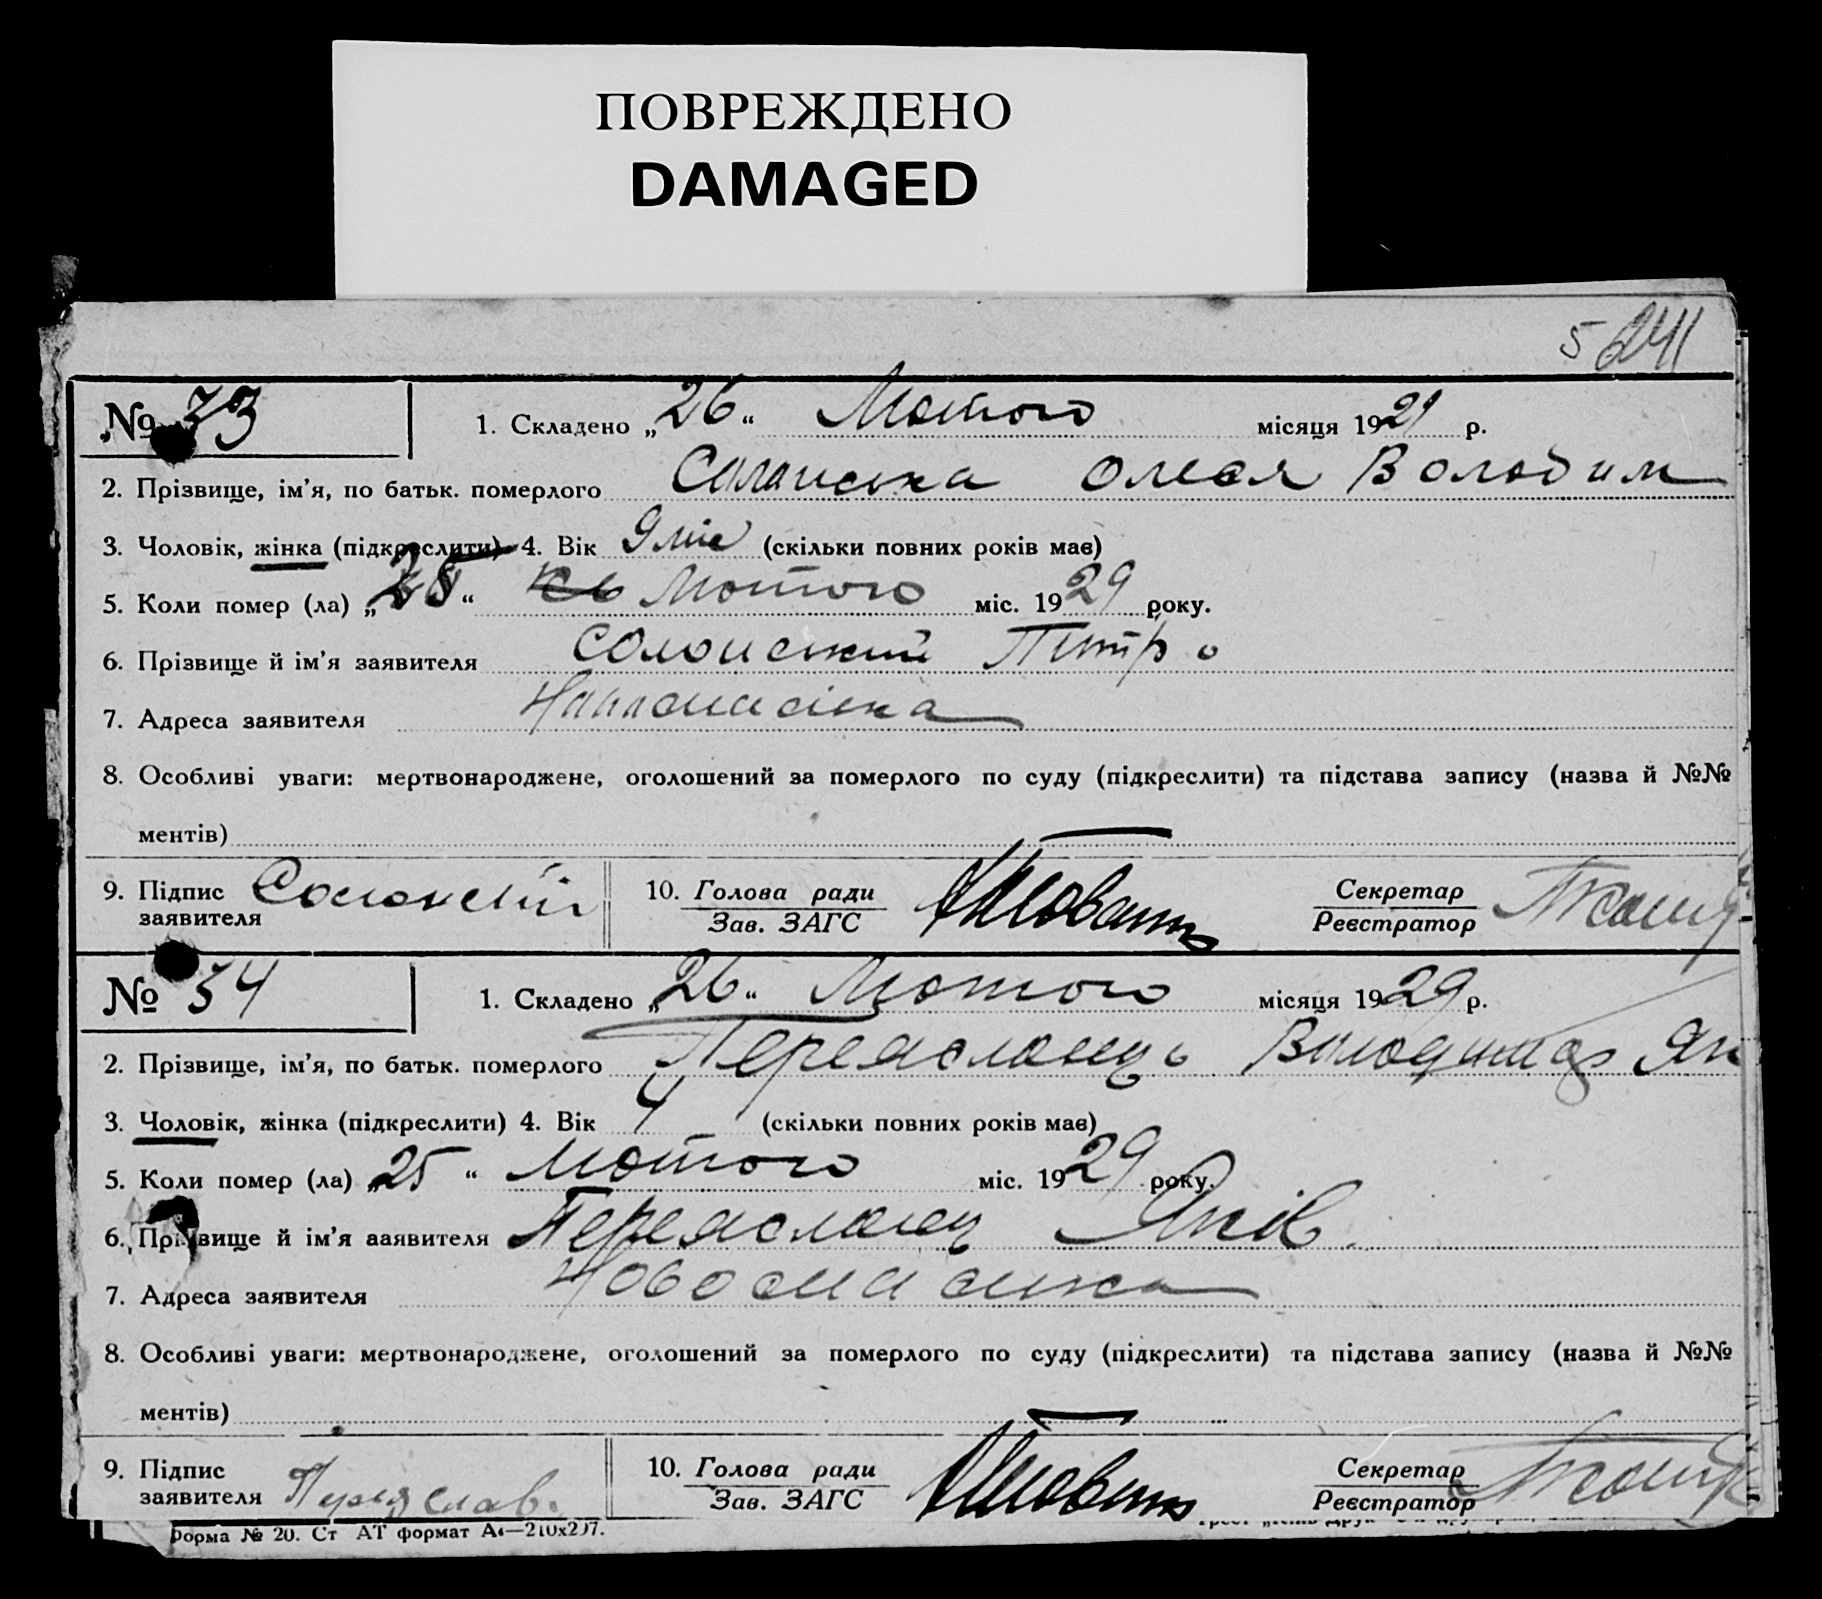 ПОВРЕЖДЕНО
DAMAGED
5 241
№ 33
1. Складено „26“ Лютого місяця 1929 р.
2. Прізвище, ім’я, по батьк. померлого Солонська Олеся Володим
3. Чоловік, жінка (підкреслити) 4. Вік 9 міс (скільки повних років має)
5. Коли помер (ла) „25“ Лютого міс. 1929 року.
6. Прізвище й ім’я заявителя Солонський Петро
7. Адреса заявителя
8. Особливі уваги: мертвонароджене, оголошений за померлого по суду (підкреслити) та підстава запису (назва й №№
ментів)
9. Підпис заявителя Солонский 10. Голова ради Зав. ЗАГС Секретар Реєстратор
№ 34
1. Складено „26“ Лютого місяця 1929 р.
2. Прізвище, ім’я, по батьк. померлого Переяславець Володимир Як
3. Чоловік, жінка (підкреслити) 4. Вік 4 (скільки повних років має)
5. Коли помер (ла) „25“ Лютого міс. 1929 року.
6. Прізвище й ім’я заявителя Переяславец Яків.
7. Адреса заявителя
8. Особливі уваги: мертвонароджене, оголошений за померлого по суду (підкреслити) та підстава запису (назва й №№
ментів)
9. Підпис заявителя Переяслав. 10. Голова ради Зав. ЗАГС Секретар Реєстратор
Форма № 20. Ст АТ формат А4—210х297.